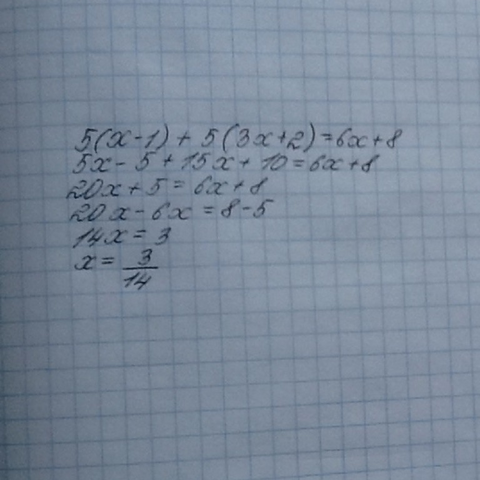 5(x-1) + 5(3x+2)=6x+8
5x-5+15x+10=6x+8
20x+5=6x+8
20x-6x=8-5
14x=3
x=3/14